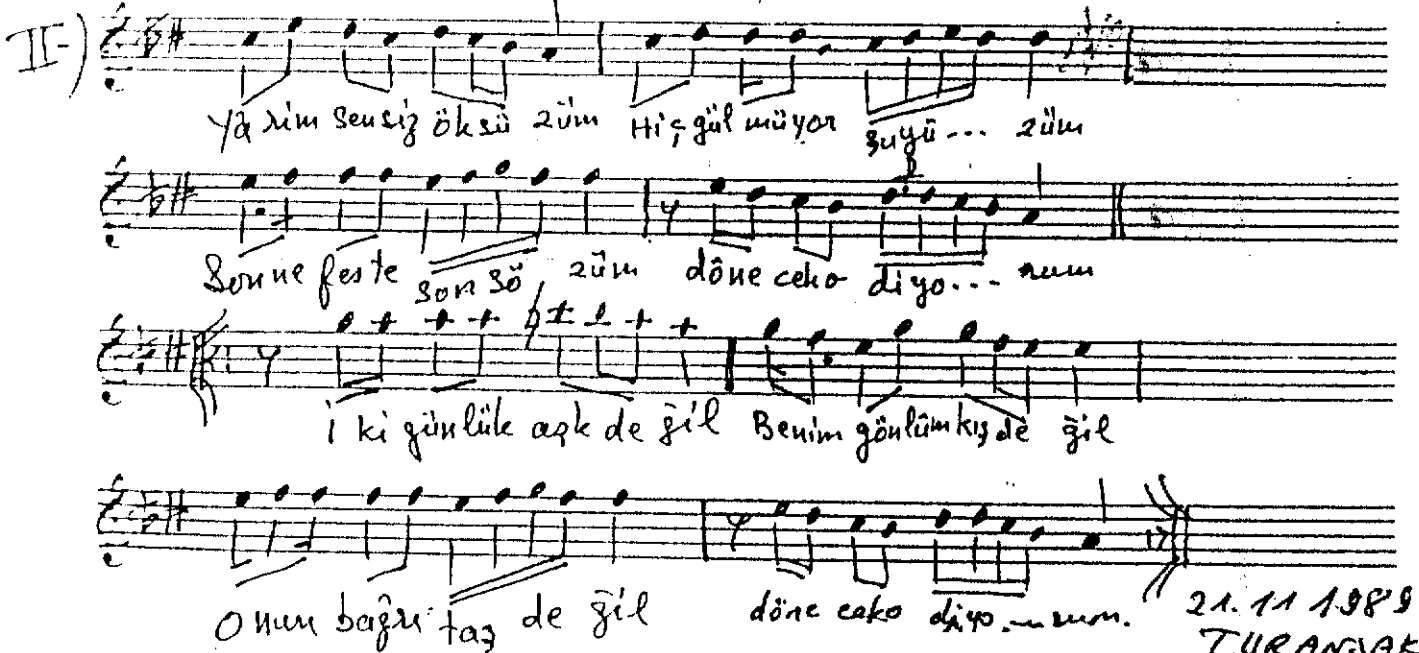 II-)
Yâ rim sensiz öksü züm Hiç gül müyor şu yü... züm
Son ne feste son sö züm döne ceko diyo... rum
i ki günlük aşk de ğil Benim gönlüm kış de ğil
O nun bağrı taş de ğil döne ceko diyo... rum.
21.11 1989